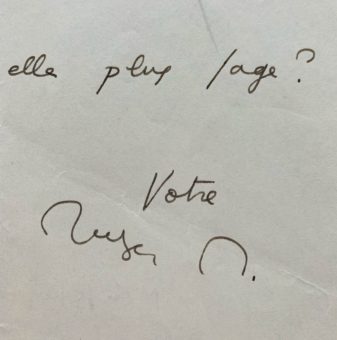 elle plus sage ?
Votre